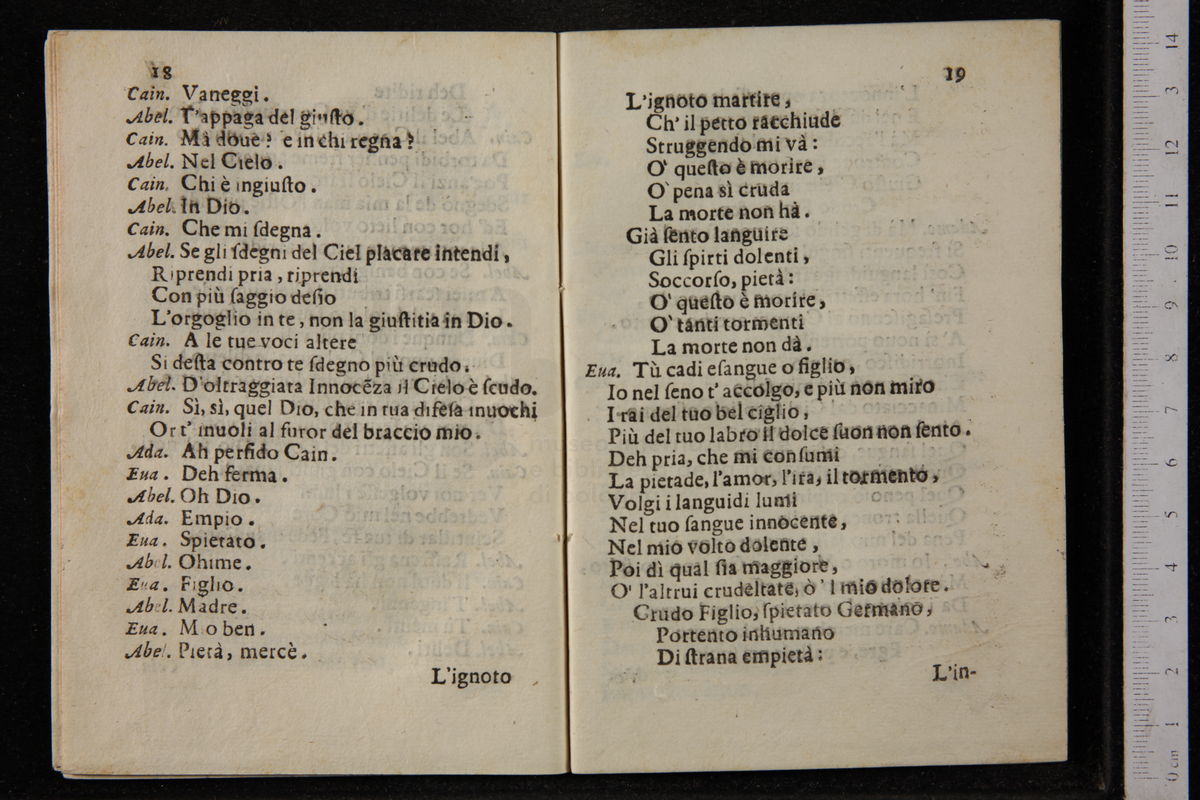 18
Cain. Vaneggi.
Abel. T'appaga del giuſto.
Cain. Mà doue? e in chi regna?
Abel. Nel Cielo.
Cain. Chi è ingiuſto.
Abel. In Dio.
Cain. Che mi ſdegna.
Abel. Se gli ſdegni del Ciel placare intendi,
Riprendi pria, riprendi
Con più ſaggio deſio
L'orgoglio in te, non la giuſtitia in Dio.
Cain. A le tue voci altere
Si deſta contro te ſdegno più crudo.
Abel. D'oltraggiata Innocēza il Cielo è ſcudo.
Cain. Sì, sì, quel Dio, che in tua difeſa inuochi
Or t' inuoli al furor del braccio mio.
Ada. Ah perfido Cain.
Eua. Deh ferma.
Abel. Oh Dio.
Ada. Empio.
Eua. Spietato.
Abel. Ohime.
Eua. Figlio.
Abel. Madre.
Eua. Mio ben.
Abel. Pietà, mercè.
L'ignoto
19
L'ignoto martire,
Ch' il petto racchiude
Struggendo mi và:
O' queſto è morire,
O' pena sì cruda
La morte non hà.
Già ſento languire
Gli ſpirti dolenti,
Soccorſo, pietà:
O' queſto è morire,
O' tanti tormenti
La morte non dà.
Eua. Tù cadi eſangue o figlio,
Io nel ſeno t' accolgo, e più non miro
I rai del tuo bel ciglio,
Più del tuo labro il dolce ſuon non ſento.
Deh pria, che mi conſumi
La pietade, l'amor, l'ira, il tormento,
Volgi i languidi lumi
Nel tuo ſangue innocente,
Nel mio volto dolente,
Poi dì qual ſia maggiore,
O' l'altrui crudeltate, ò 'l mio dolore.
Crudo Figlio, ſpietato Germano,
Portento inhumano
Di ſtrana empietà:
L'in-
0 cm 1 2 3 4 5 6 7 8 9 10 11 12 13 14